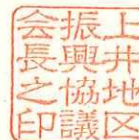 上井地区
振興協議
会長之印